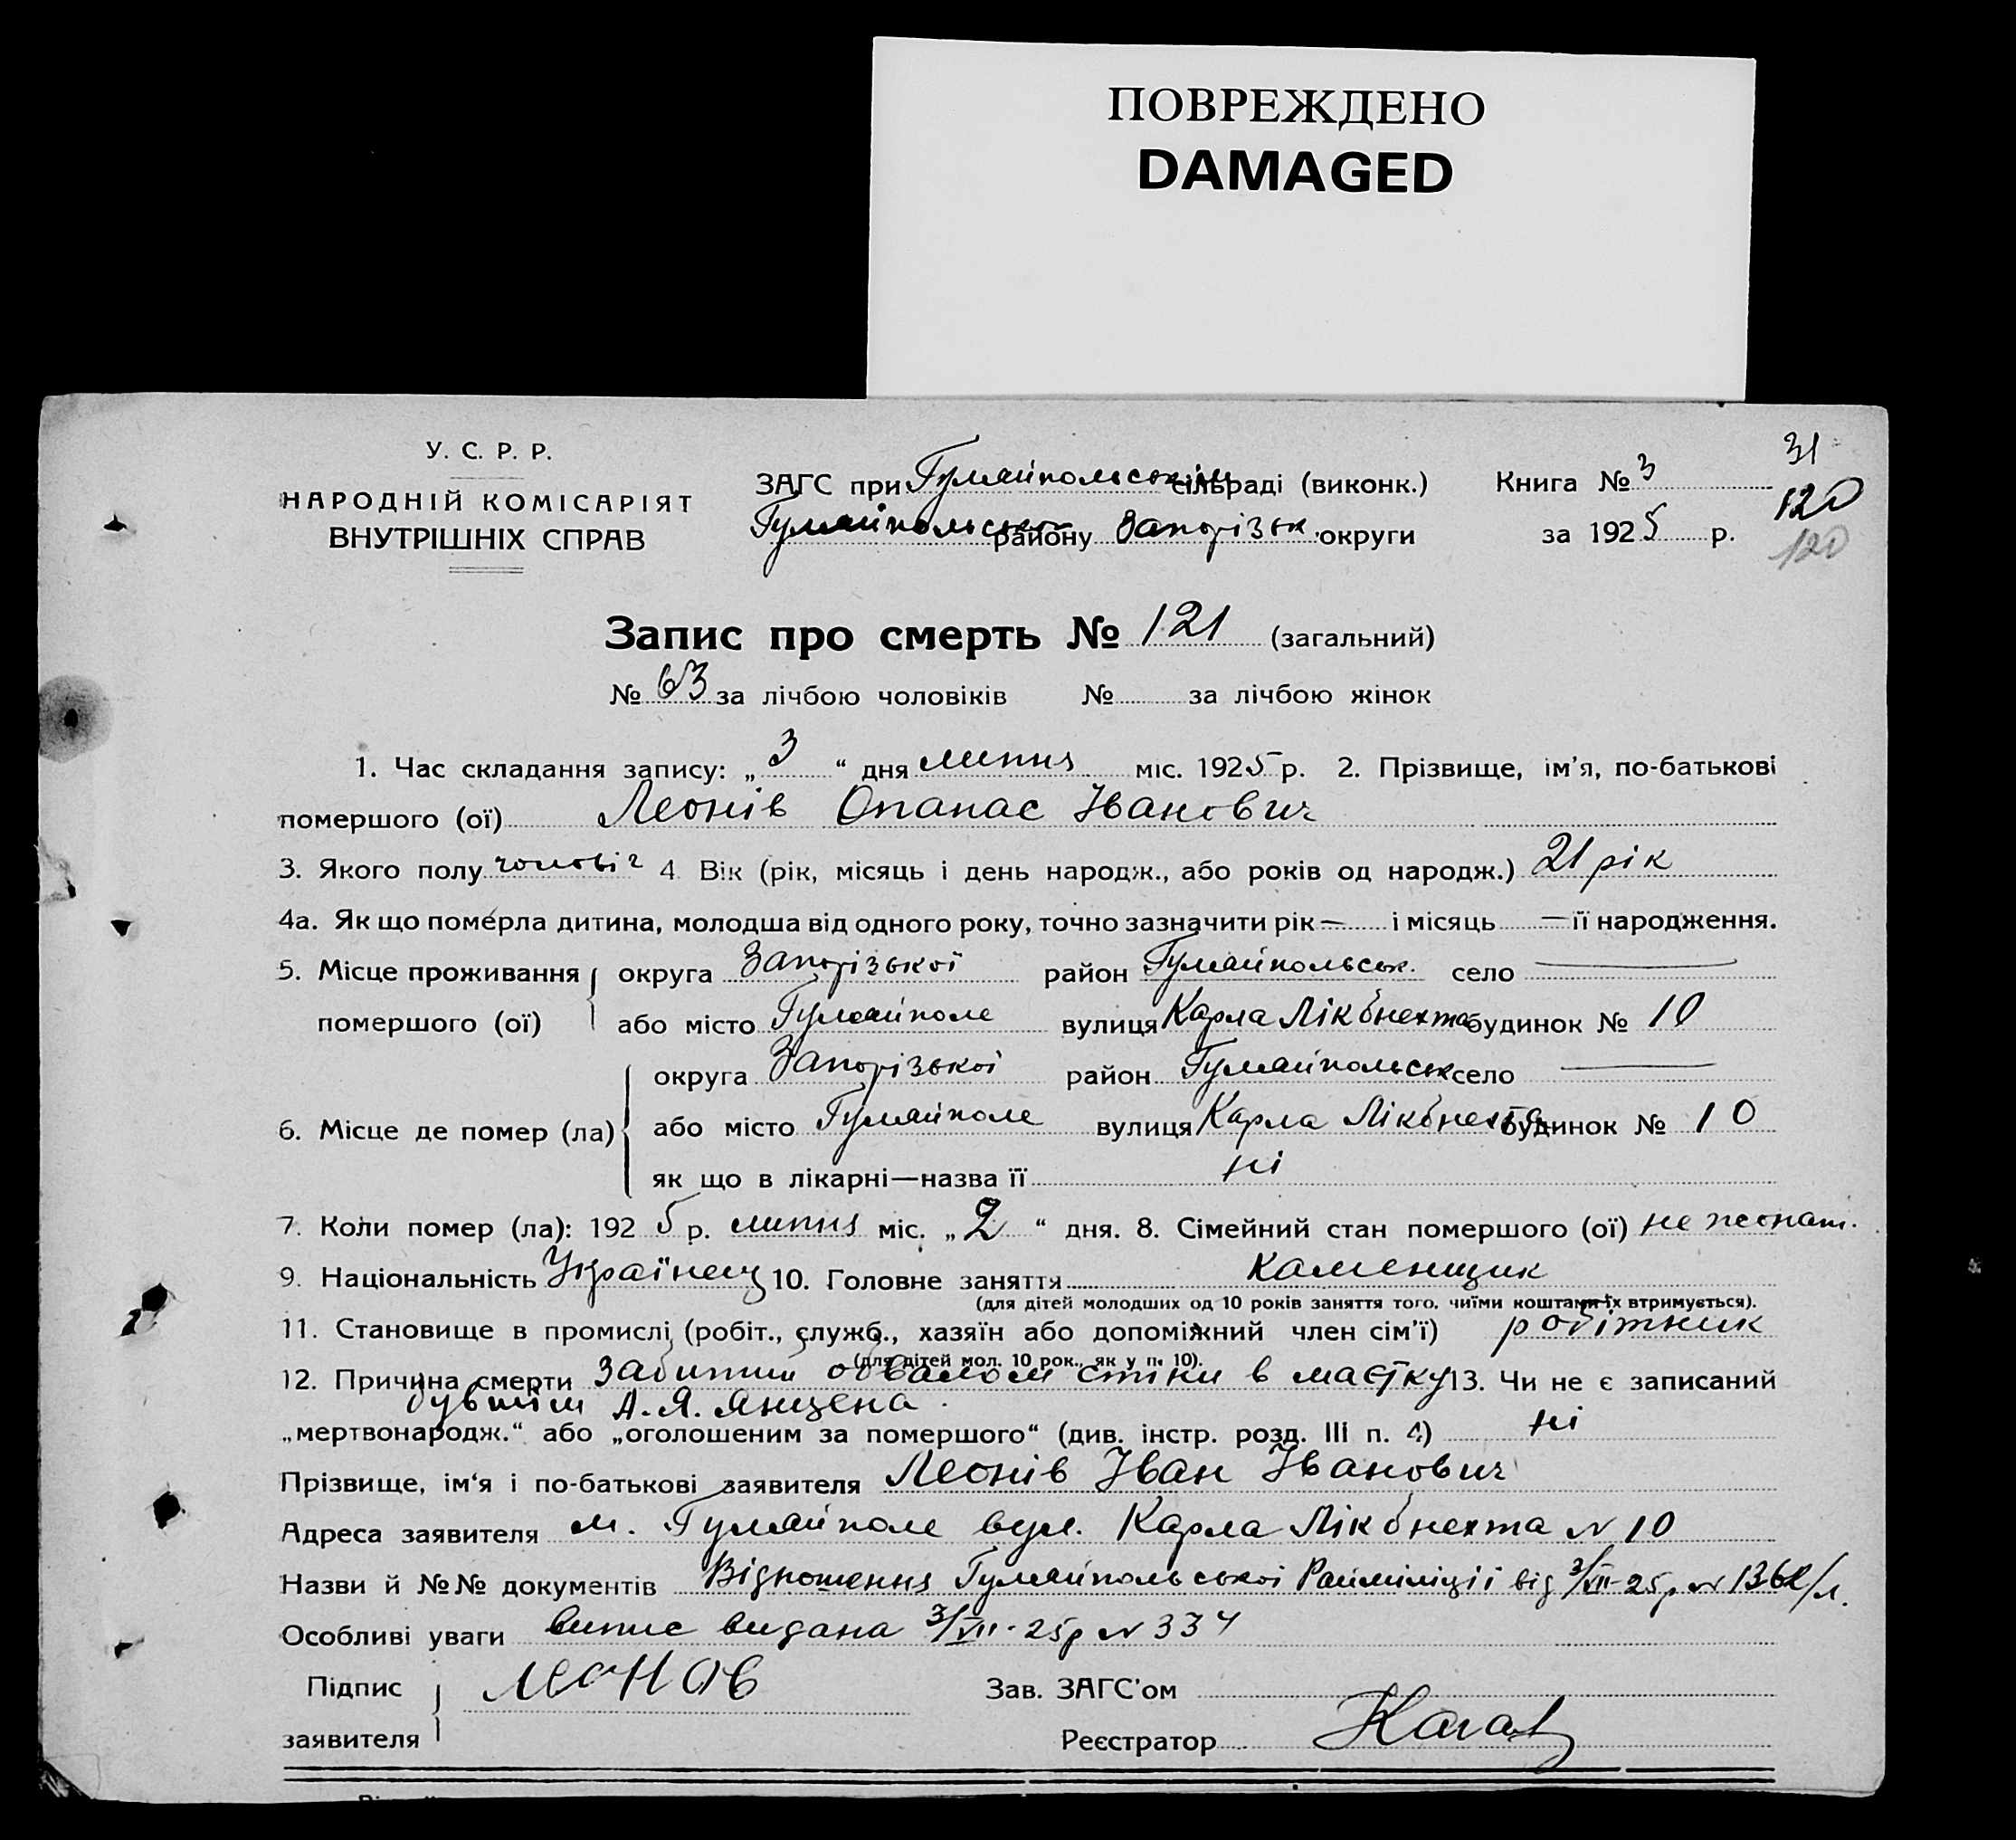 ПОВРЕЖДЕНО
DAMAGED
У. С. Р. Р.
НАРОДНІЙ КОМІСАРІЯТ
ВНУТРІШНІХ СПРАВ
ЗАГС при Гуляйпольській сільраді (виконк.)
Гуляйпольського району Запоріжськ. округи
Книга № 3
за 1925 р.
31
120
120
Запис про смерть № 121 (загальний)
№ 63 за лічбою чоловіків № за лічбою жінок
1. Час складання запису: „3“ дня липня міс. 1925 р. 2. Прізвище, ім’я, по-батькові
помершого (ої) Леонів Опанас Іванович
3. Якого полу чоловіч 4 Вік (рік, місяць і день народж., або років од народж.) 21 рік
4а. Як що померла дитина, молодша від одного року, точно зазначити рік — і місяць — її народження.
5. Місце проживання округа Запорізької район Гуляйпольськ. село —
помершого (ої) або місто Гуляйполе вулиця Карла Лікбнехта будинок № 10
округа Запорізької район Гуляйпольськ село —
6. Місце де помер (ла) або місто Гуляйполе вулиця Карла Лікбнехта будинок № 10
як що в лікарні—назва її ні
7. Коли помер (ла): 1925 р. липня міс. „2“ дня. 8. Сімейний стан помершого (ої) не жонат.
9. Національність Українец 10. Головне заняття Каменщик
(для дітей молодших од 10 років заняття того, чиїми коштами їх втримується).
11. Становище в промислі (робіт., служб., хазяїн або допоміжний член сім’ї) робітник
(для дітей мол. 10 рок., як у п. 10).
12. Причина смерти Забитий обвалом стіки в маєтку 13. Чи не є записаний
бувшім А. Я. Янцена.
„мертвонародж.“ або „оголошеним за помершого“ (див. інстр. розд. III п. 4) ні
Прізвище, ім‘я і по-батькові заявителя Леонів Іван Іванович
Адреса заявителя м. Гуляйполе вул. Карла Лікбнехта № 10
Назви й №№ документів Відношення Гуляйпольської Райміліції від 3/VII-25р № 1362/л.
Особливі уваги випис видана 3/VII-25р № 334
Підпис
заявителя Леонов
Зав. ЗАГС’ом
Реєстратор